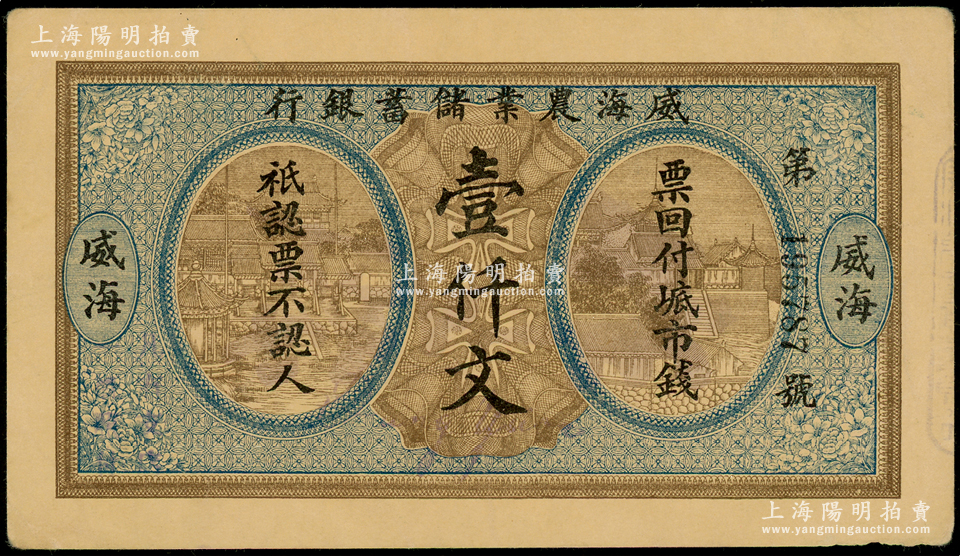 上海陽明拍賣
www.yangmingauction.com
威海農業儲蓄銀行
第195787號
威海
票回付墄市錢
壹仟文
祇認票不認人
威海
上海陽明拍賣
www.yangmingauction.com
上海陽明拍賣
www.yangmingauction.com